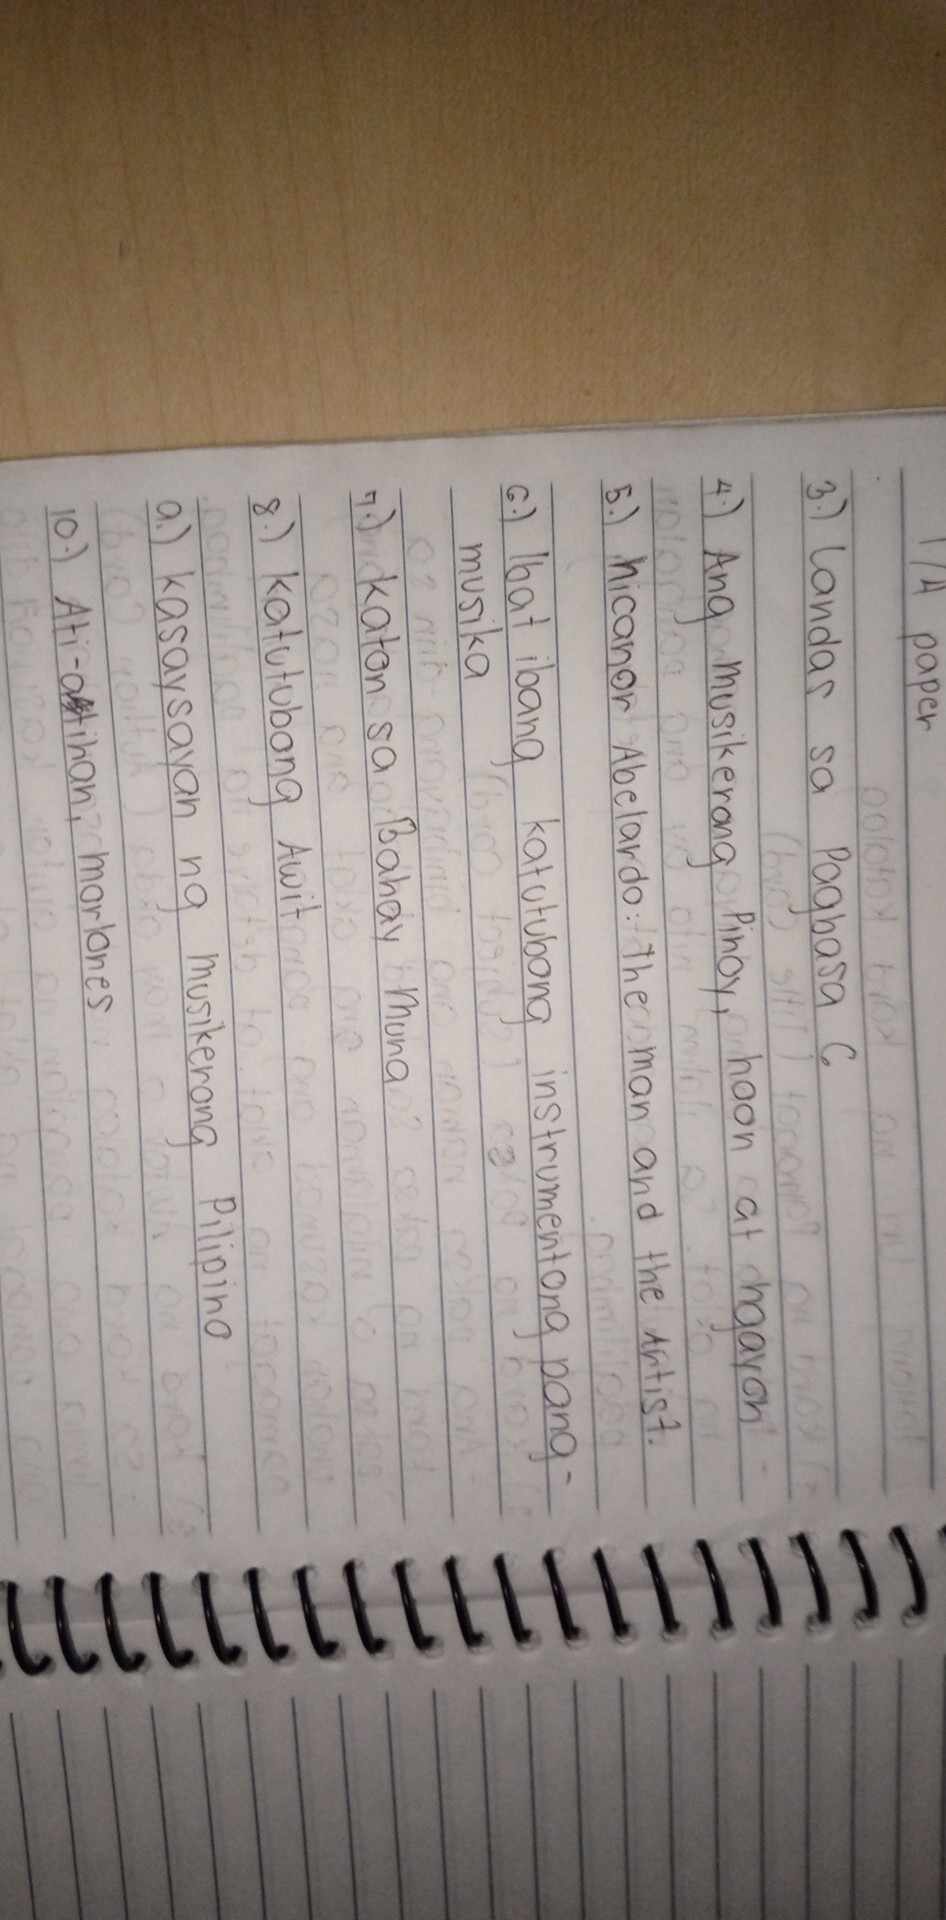 1/4 paper
3.) Landas sa Pagbasa 6
4.) Ang musikerang Pinoy, noon at ngayon
5.) nicanor Abelardo: The man and the Artist.
6.) Ibat ibang katutubong instrumentong pang-
musika
7.) katon sa Bahay Muna
8.) katutubong Awit
9.) kasaysayan ng musikerong Pilipino
10.) Ati-atihan, moriones